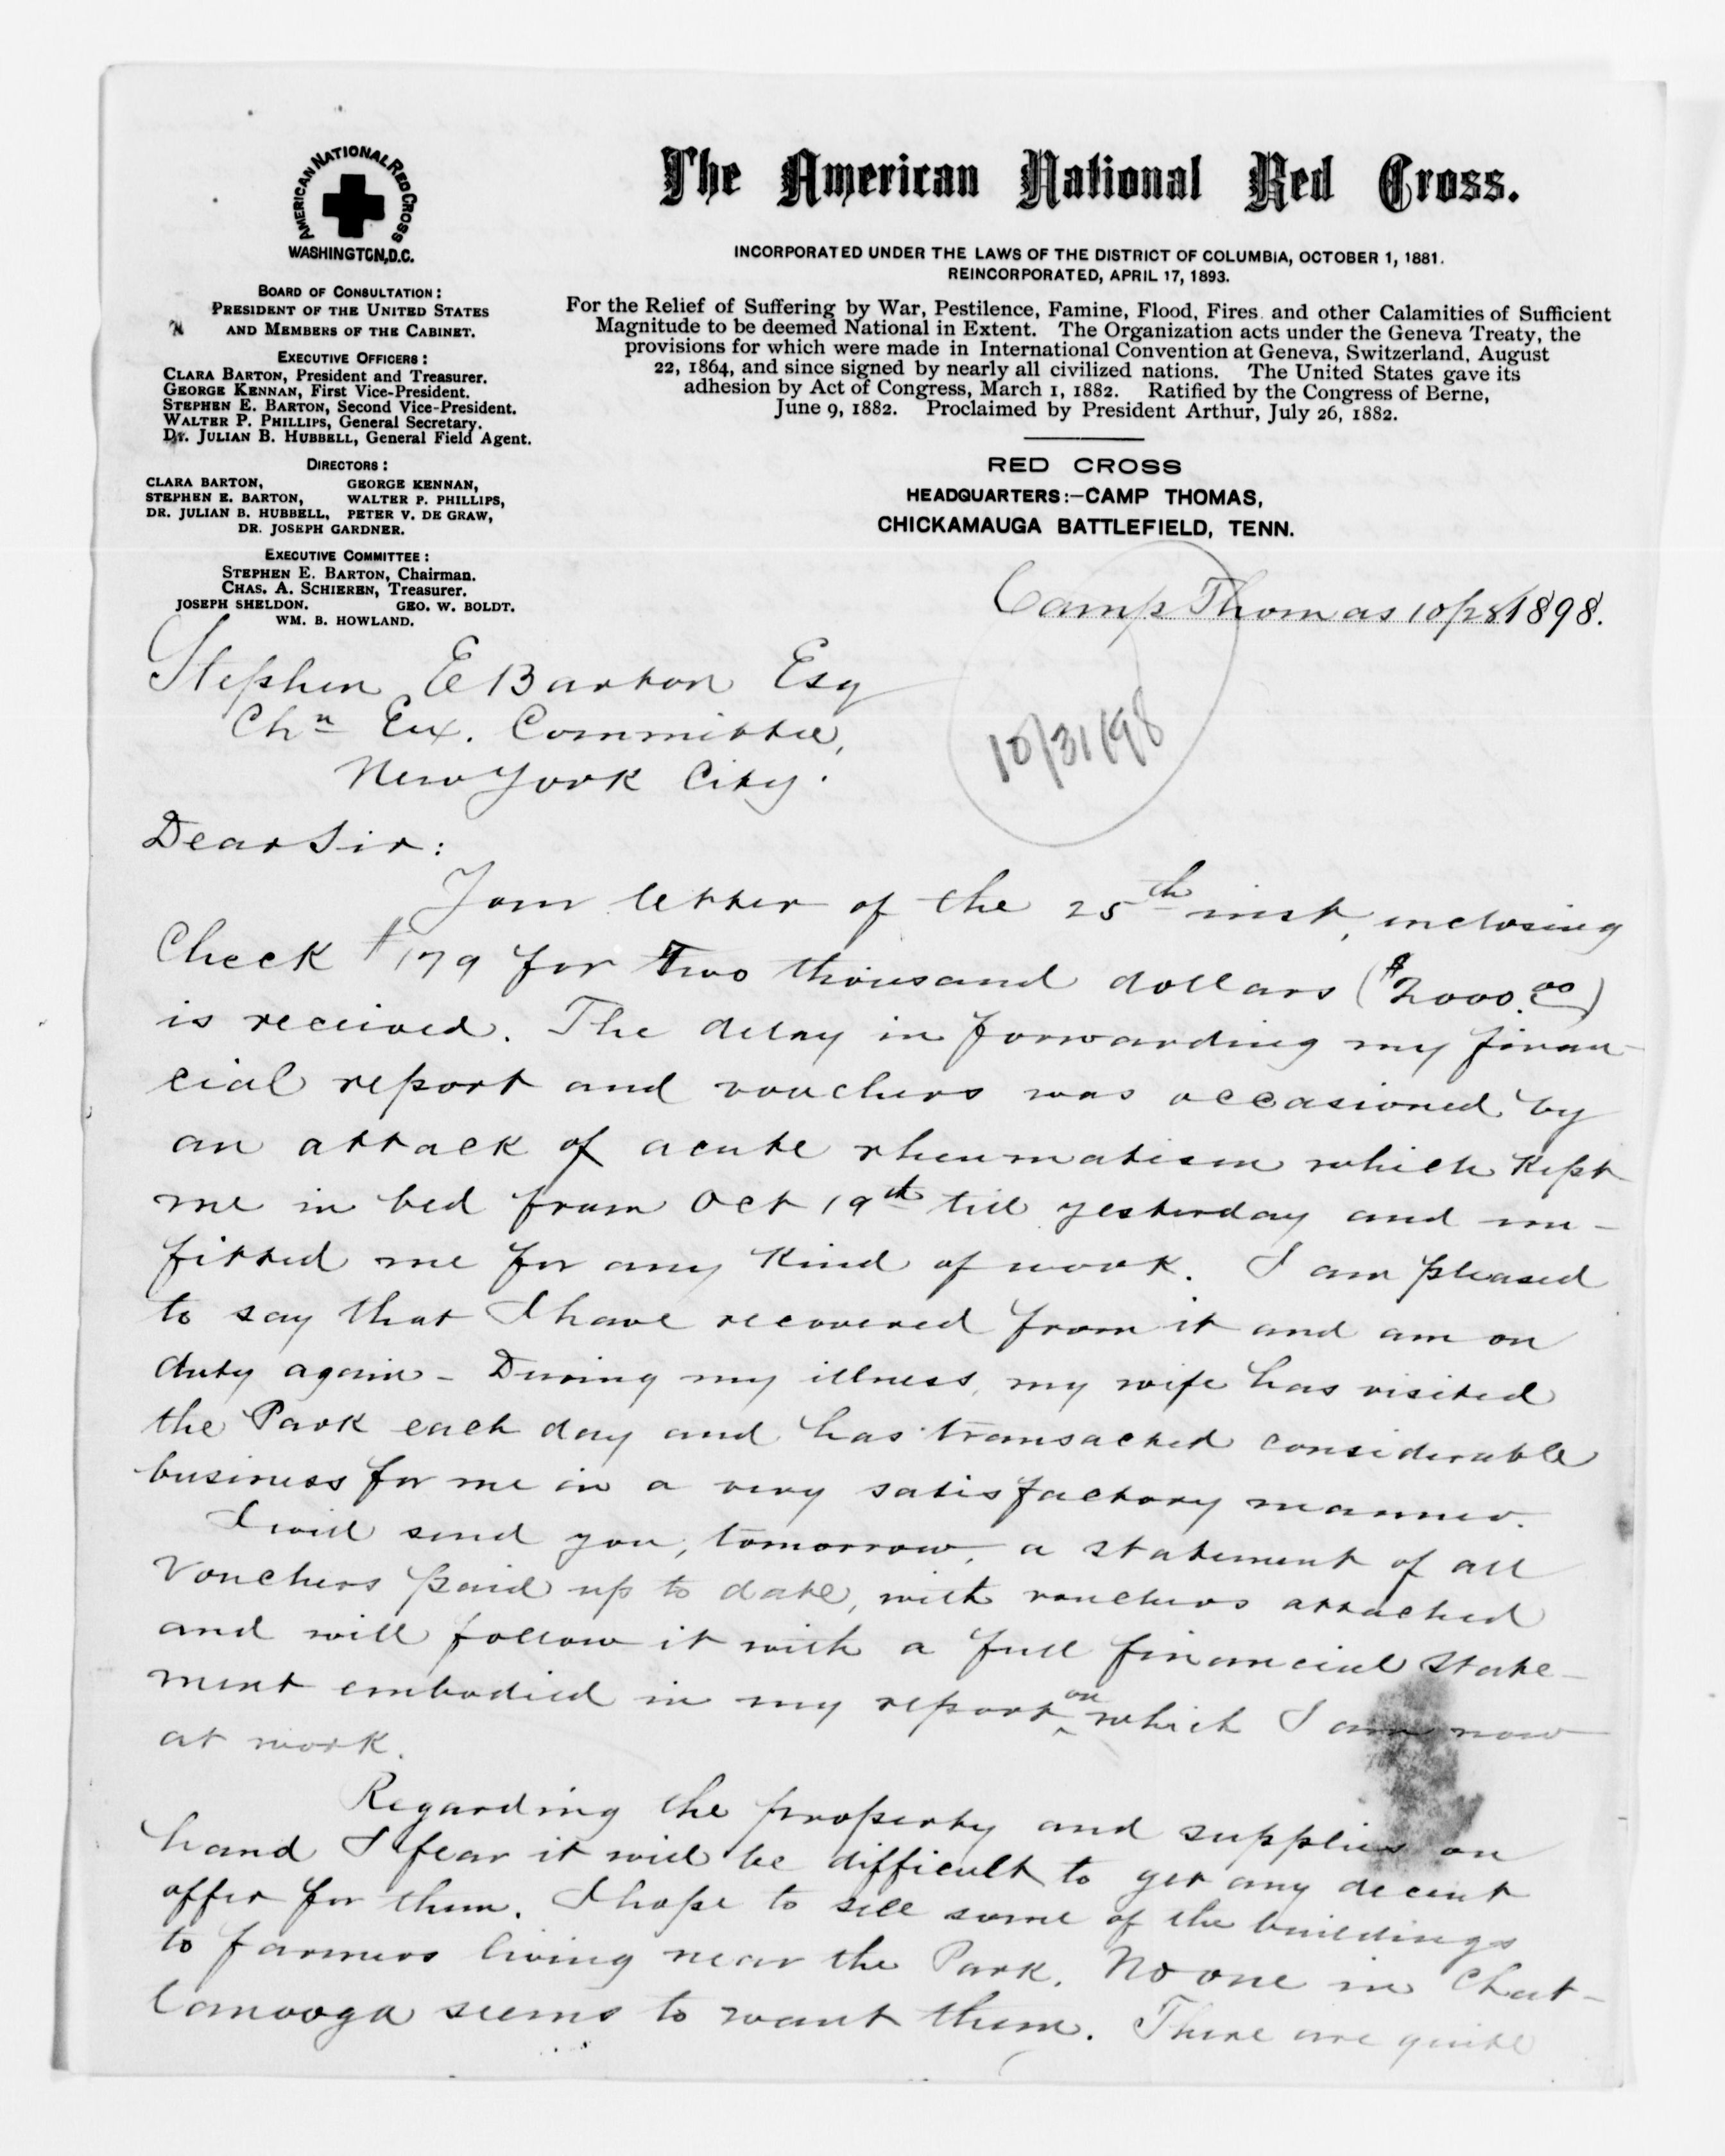 AMERICAN NATIONAL RED CROSS
WASHINGTON, D.C.
BOARD OF CONSULTATION:
PRESIDENT OF THE UNITED STATES
AND MEMBERS OF THE CABINET.
EXECUTIVE OFFICERS:
CLARA BARTON, President and Treasurer.
GEORGE KENNAN, First Vice-President.
STEPHEN E. BARTON, Second Vice-President.
WALTER P. PHILLIPS, General Secretary.
DR. JULIAN B. HUBBELL, General Field Agent.
DIRECTORS:
CLARA BARTON, GEORGE KENNAN,
STEPHEN E. BARTON, WALTER P. PHILLIPS,
DR. JULIAN B. HUBBELL, PETER V. DE GRAW,
DR. JOSEPH GARDNER.
EXECUTIVE COMMITTEE:
STEPHEN E. BARTON, Chairman.
CHAS. A. SCHIEREN, Treasurer.
JOSEPH SHELDON. GEO. W. BOLDT.
WM. B. HOWLAND.
The American National Red Cross.
INCORPORATED UNDER THE LAWS OF THE DISTRICT OF COLUMBIA, OCTOBER 1, 1881.
REINCORPORATED, APRIL 17, 1893.
For the Relief of Suffering by War, Pestilence, Famine, Flood, Fires and other Calamities of Sufficient
Magnitude to be deemed National in Extent. The Organization acts under the Geneva Treaty, the
provisions for which were made in International Convention at Geneva, Switzerland, August
22, 1864, and since signed by nearly all civilized nations. The United States gave its
adhesion by Act of Congress, March 1, 1882. Ratified by the Congress of Berne,
June 9, 1882. Proclaimed by President Arthur, July 26, 1882.
RED CROSS
HEADQUARTERS:—CAMP THOMAS,
CHICKAMAUGA BATTLEFIELD, TENN.
Camp Thomas 10/28/1898.
10/31/98
Stephen E Barton Esq
Chn Ex. Committee,
New York City.
Dear Sir:
Your letter of the 25th inst, inclosing
Check #179 for Two thousand dollars ($2000.00)
is received. The delay in forwarding my finan-
cial report and vouchers was occasioned by
an attack of acute rheumatism which kept
me in bed from Oct 19th till yesterday and un-
fitted me for any kind of work. I am pleased
to say that I have recovered from it and am on
duty again - During my illness, my wife has visited
the Park each day and has transacted considerable
business for me in a very satisfactory manner.
I will send you, tomorrow, a statement of all
vouchers paid up to date, with vouchers attached
and will follow it with a full financial state-
ment embodied in my report on which I am now
at work.
Regarding the property and supplies on
hand I fear it will be difficult to get any decent
offer for them. I hope to sell some of the buildings
to farmers living near the Park. No one in Chat-
tanooga seems to want them. There are quite